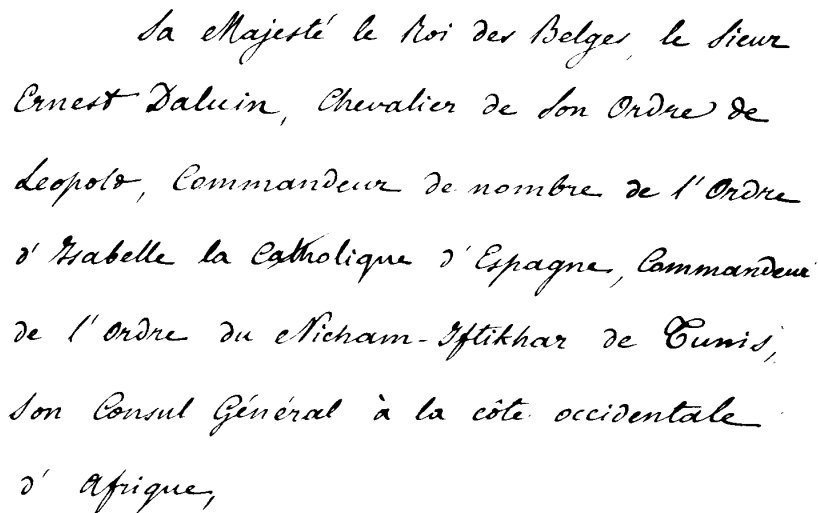 Sa Majesté le Roi des Belges, le Sieur
Ernest Daluin, Chevalier de Son Ordre de
Leopold, Commandeur de nombre de l'Ordre
d'Isabelle la Catholique d'Espagne, Commandeur
de l'Ordre du Nicham-Iftikhar de Tunis,
Son Consul Général à la côte occidentale
d'Afrique,